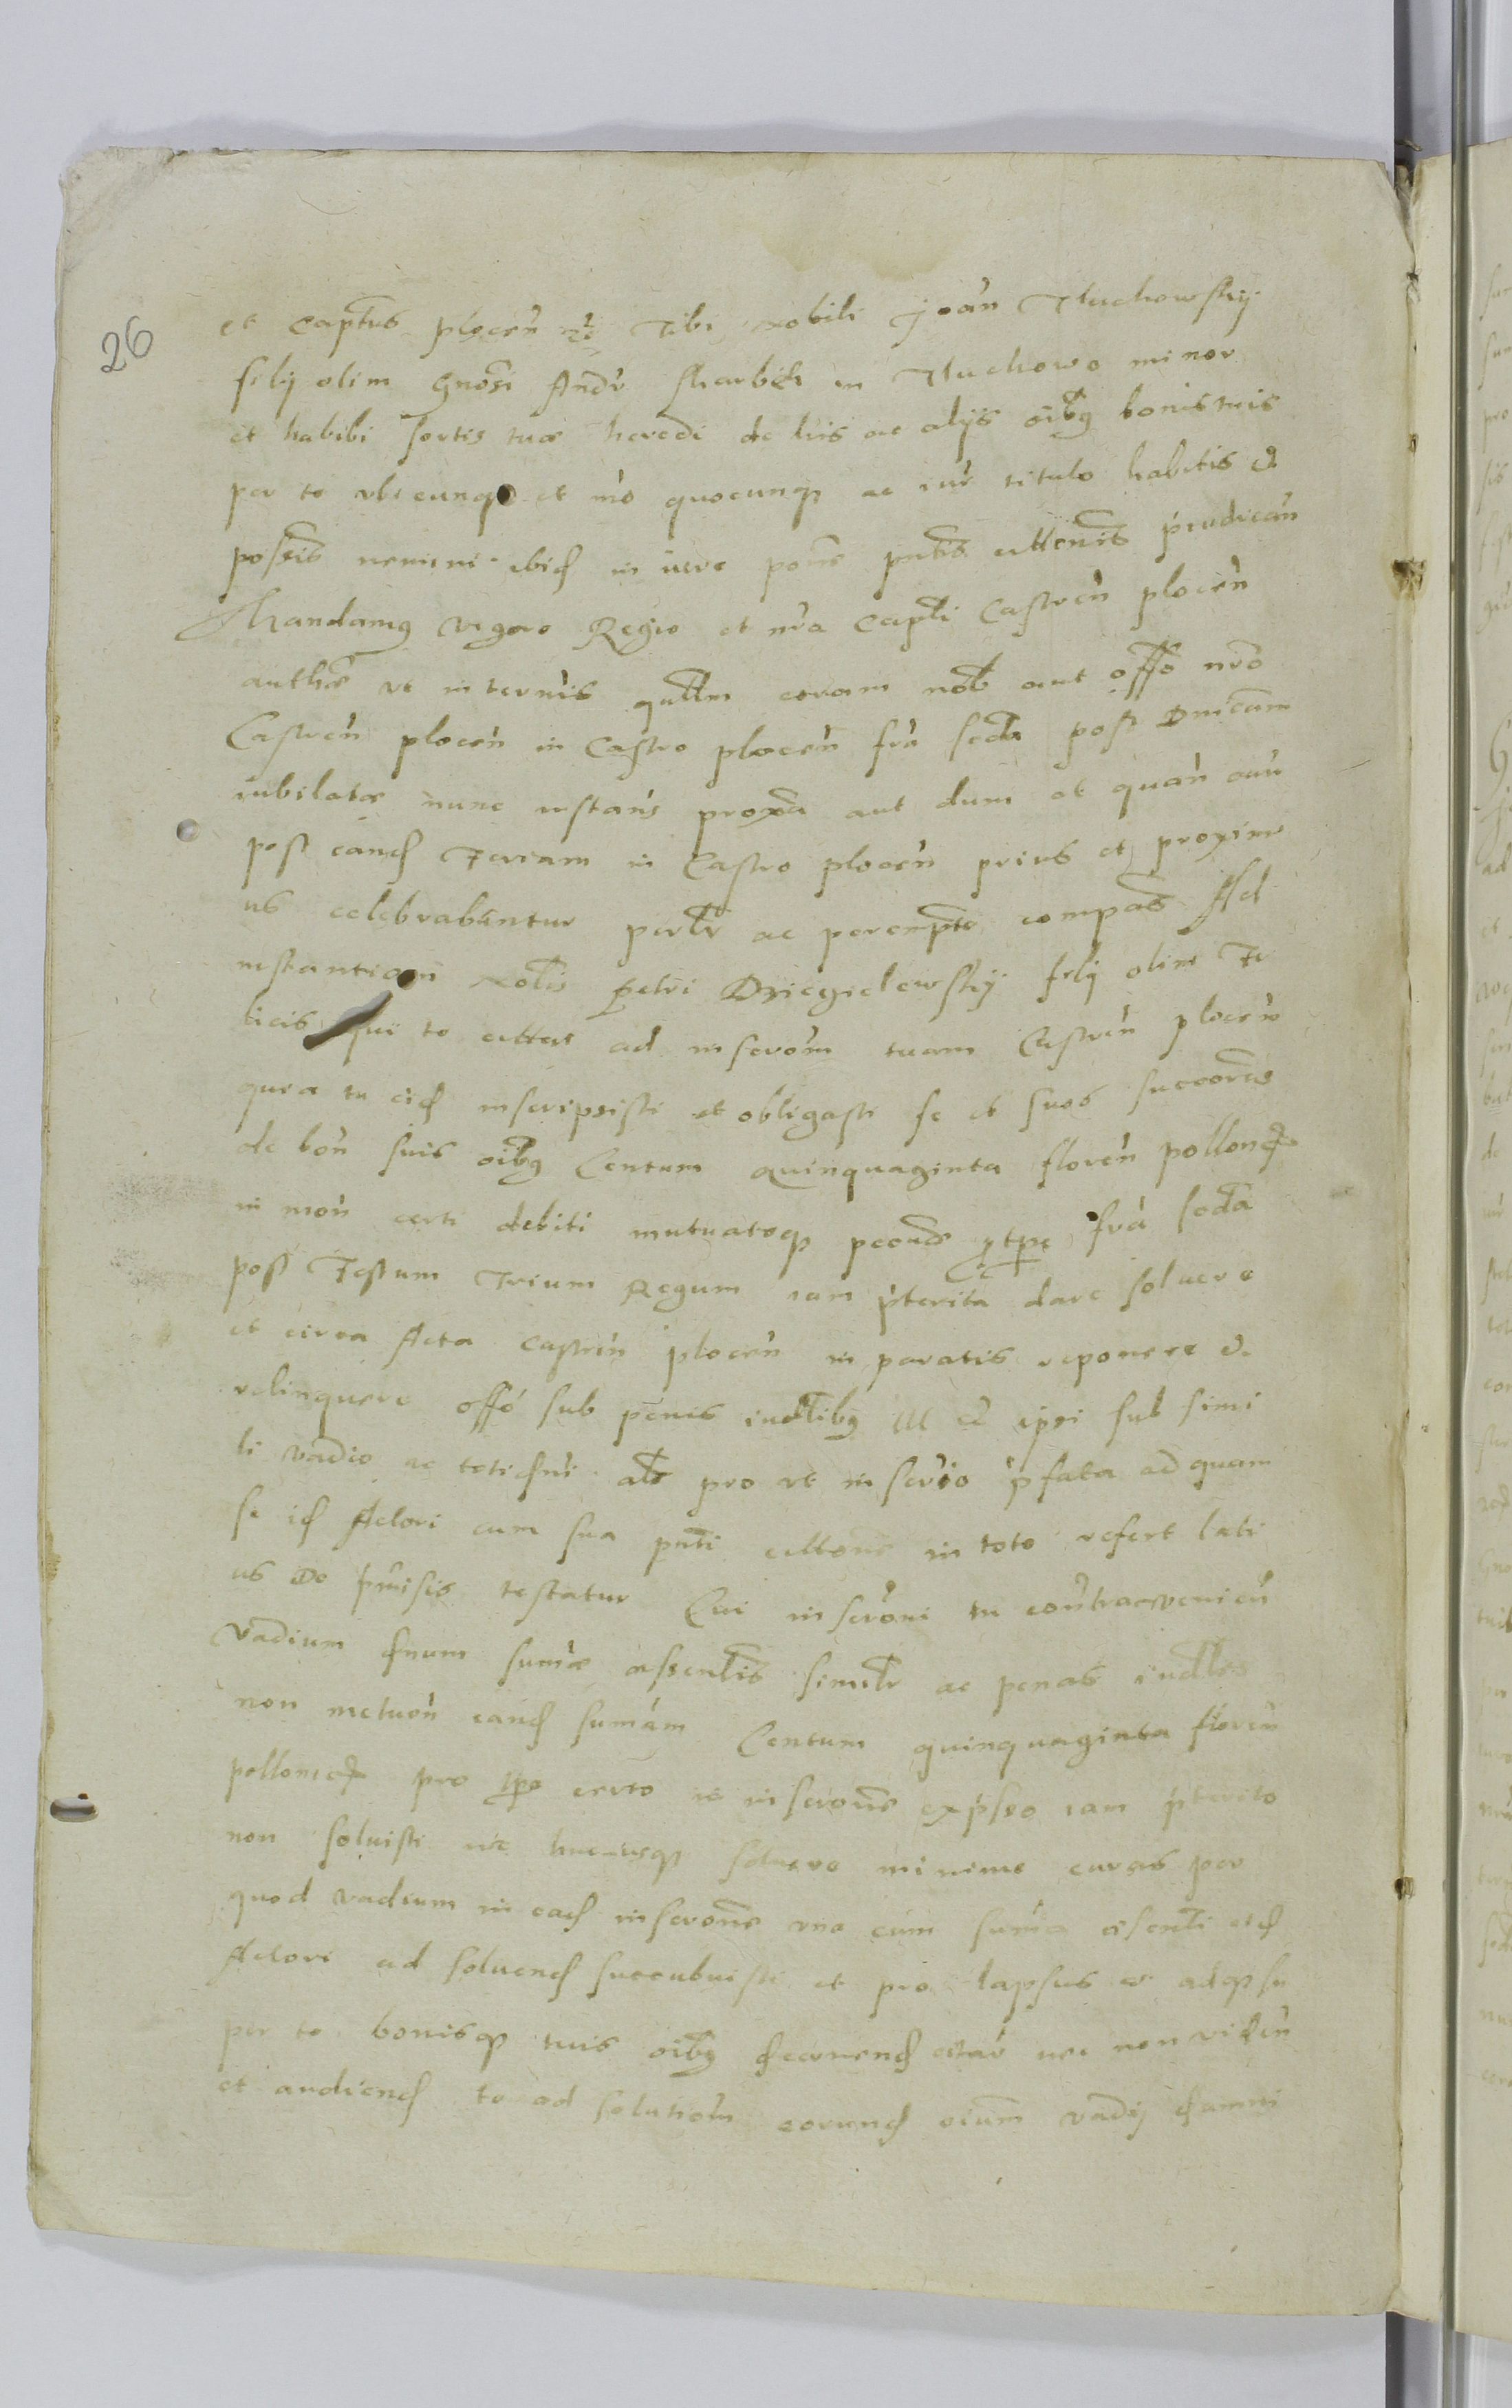 26
et Captus plocen Tibi Nobili Joan Tluchowsky
filij olim Gnosi Andr Skarbek in Tluchowo minor
et habibi sortis tuæ heredi de luis ac alijs oibq bonis tuis
per te ubicunqꝫ et mo quocunqꝫ ac iur titulo habitis et
possis nemini ibid in iure pone pntis cittonis preudican
Mandamq vigore Regio et nra Capti Castren plocen
authe ut in termis coram nob aut offo nro
Castren plocen in Castro plocen fra secda post Dnicam
iubilatæ nunc instans proxa aut dum et quan
post eand Feriam in Castro plocen prius et proxime
us celebrabuntur perlr ac perempte compas Ad
instantiam Nobis Petri Dziegielewsky filij olim Fe
licis qui te cittat ad inscrom tuam Castren plocen
qura tu eid inscripsisti et obligasti se et suos succores
de bon suis oibq Centum quinquaginta floren pollon
in mon certi debiti mutuateqꝫ pecunie fra secda
post Festum Trium Regum iam pterita dare soluere
et circa Acta Castren plocen in paratis reponere et
relinquere offo sub penis iudlibq et ipsi sub simi
li vadio ac als pro ut inscrio pfata ad quam
se id Actori cum sua pnti cittone in toto refert lati
us de pmisis testatur Cui inscroni tu contravenien
Vadium dnum sumæ simlr ac penas iudles
non metuen eand sumam Centum quinquaginta floren
pollonic pro tpe certo in inscrone expso iam pterito
non soluisti nec hucusqꝫ soluere minime curas per
quod vadium in ead inscrone una cum suma eid
Actori ad soluend succubuisti et pro lapsus es adqꝫ su
per te bonisqꝫ tuis oibq decernend nec non viden
et audiend te ad solutiom eorund oium vadij damni